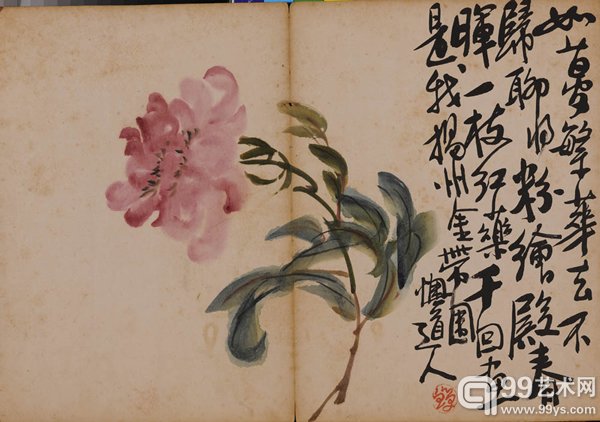 如夢繁華去不
歸聊將粉繪殿春
暉一枝紅藥千回畫
是我揚州金帶圍
懊道人
99艺术网
www.99ys.com